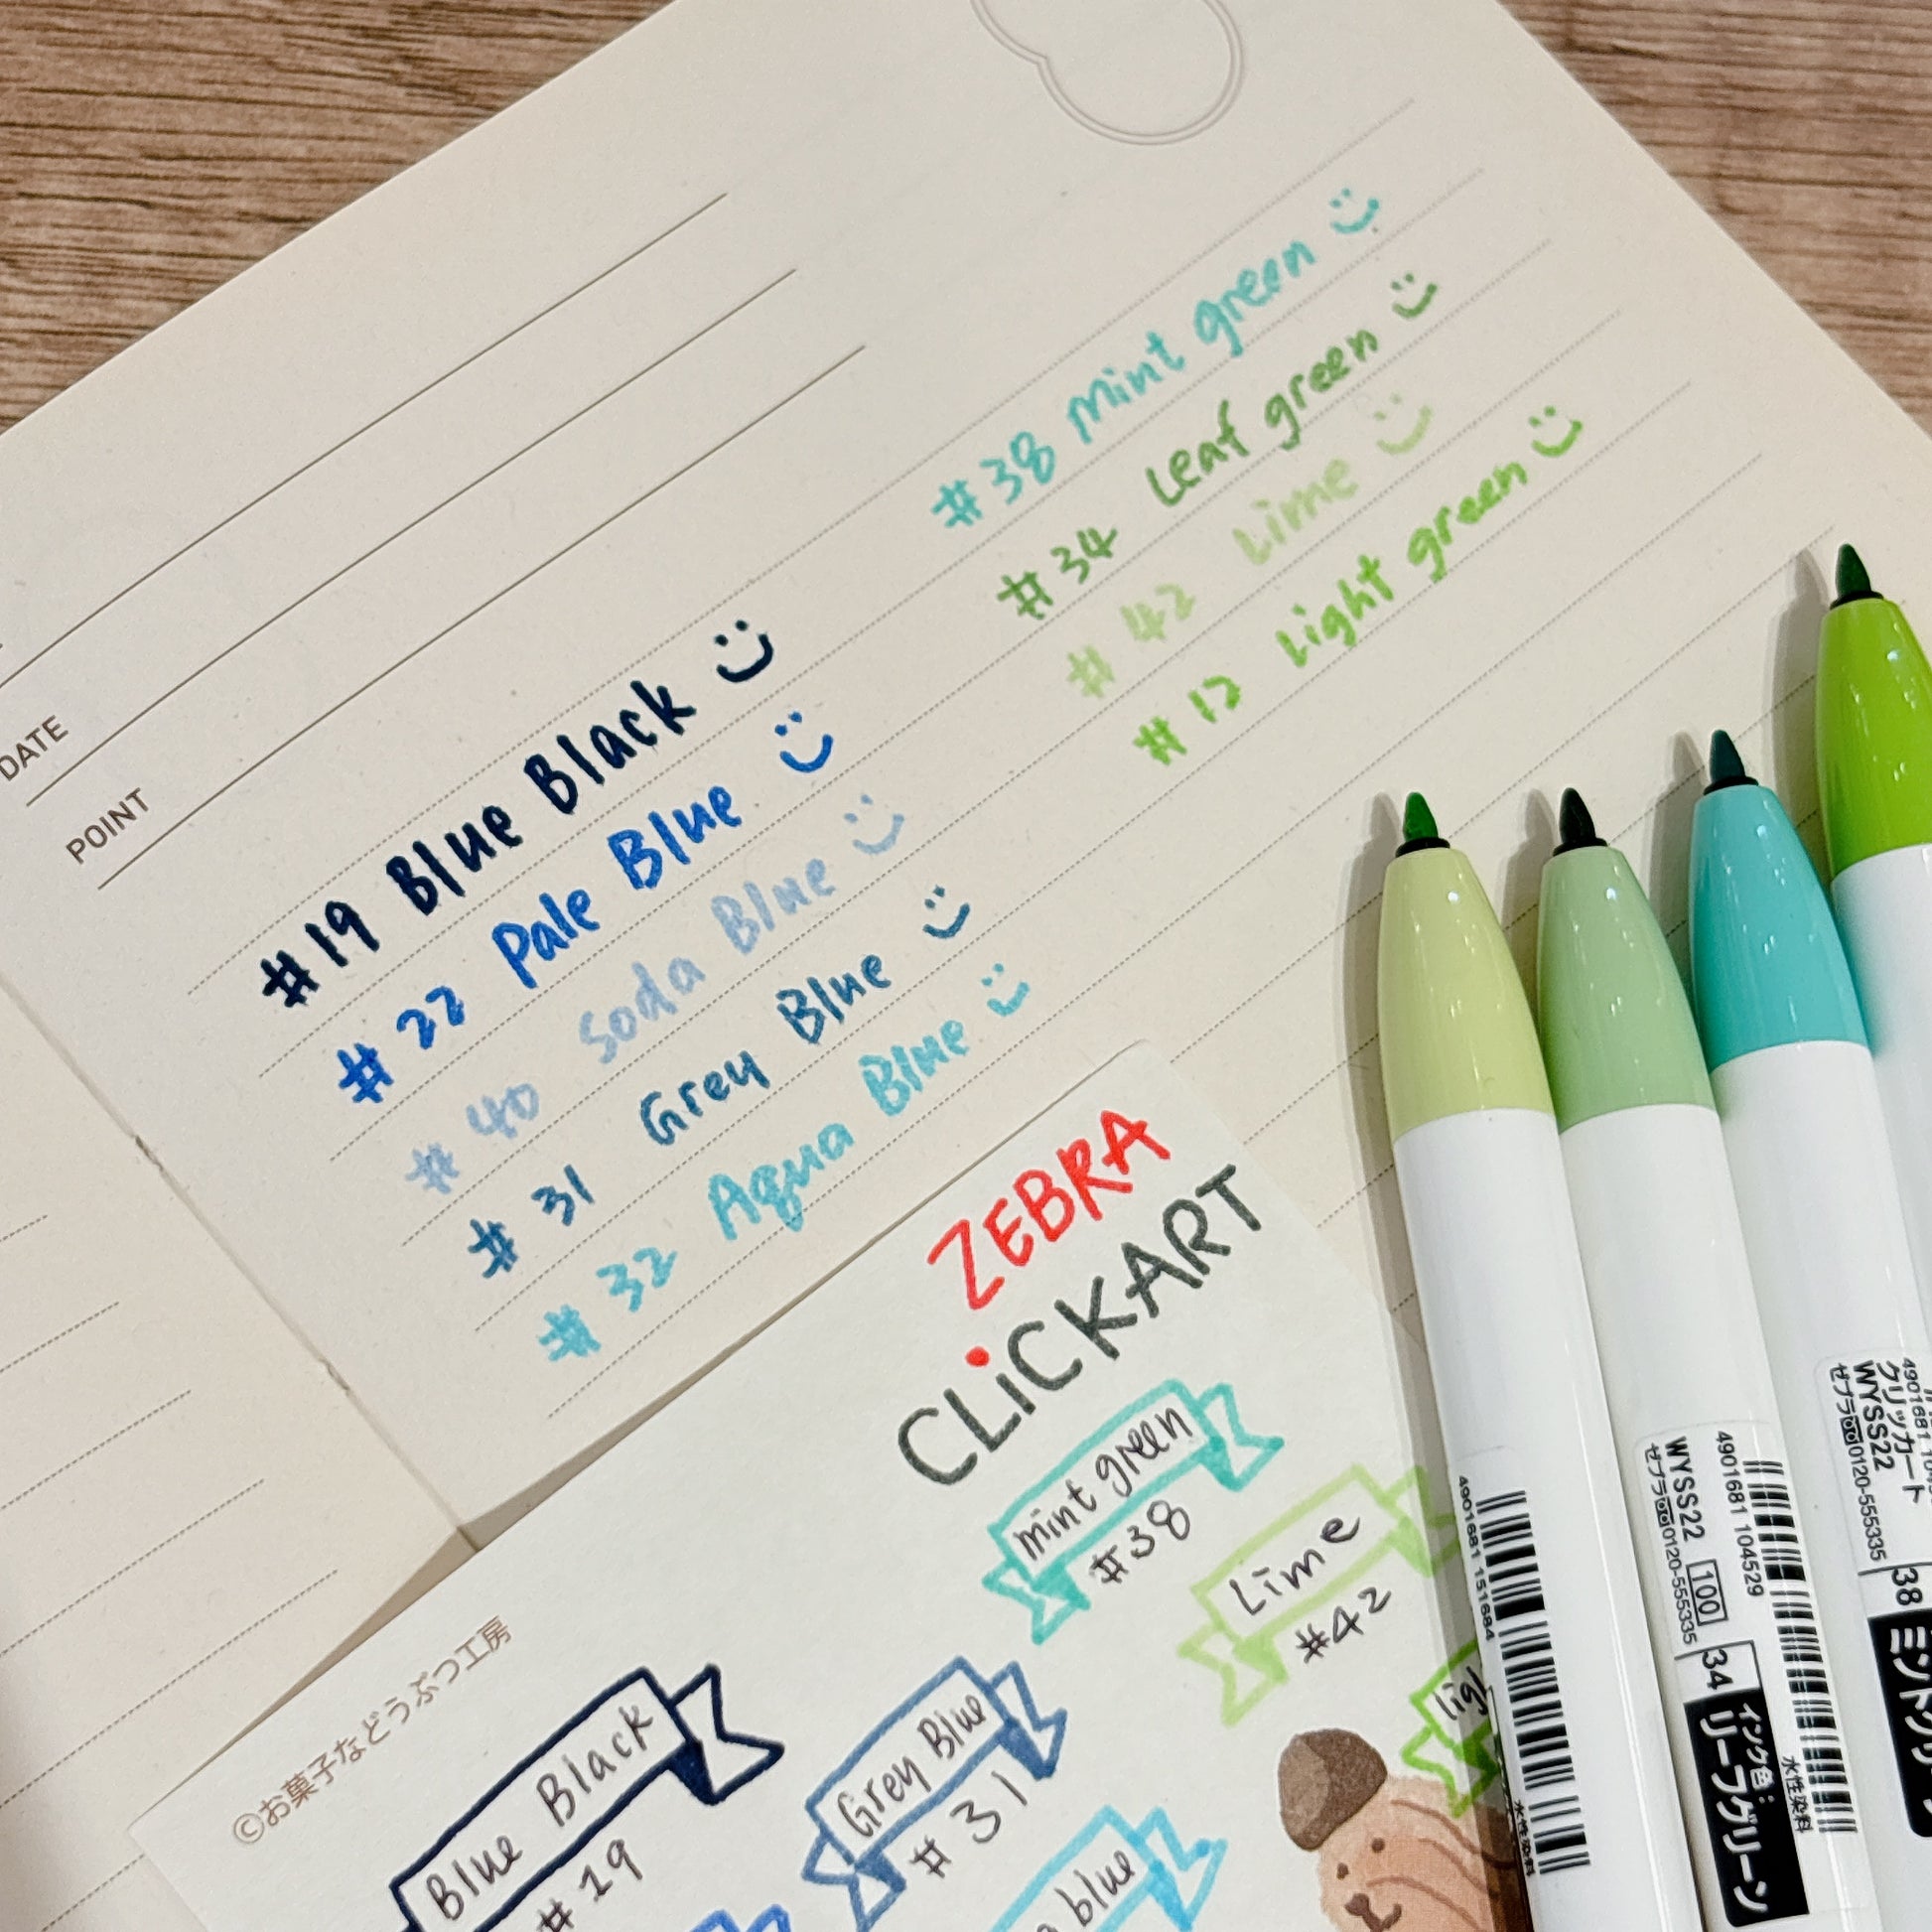 DATE
POINT
#19 Blue Black
#22 Pale Blue
#40 Soda Blue
#31 Grey Blue
#32 Aqua Blue
#38 Mint green
#34 Leaf green
#42 Lime
#12 Light green
ZEBRA
CLiCKART
mint green
#38
Lime
#42
Blue Black
#19
Grey Blue
#31
blue
©お菓子などうぶつ工房
4901681 151684
水性染料
WYSS22 100 34
ゼブラ 0120-555335
4901681 104529
インク色:
リーフグリーン
水性染料
クリッカート
WYSS22
ゼブラ 0120-555335
38